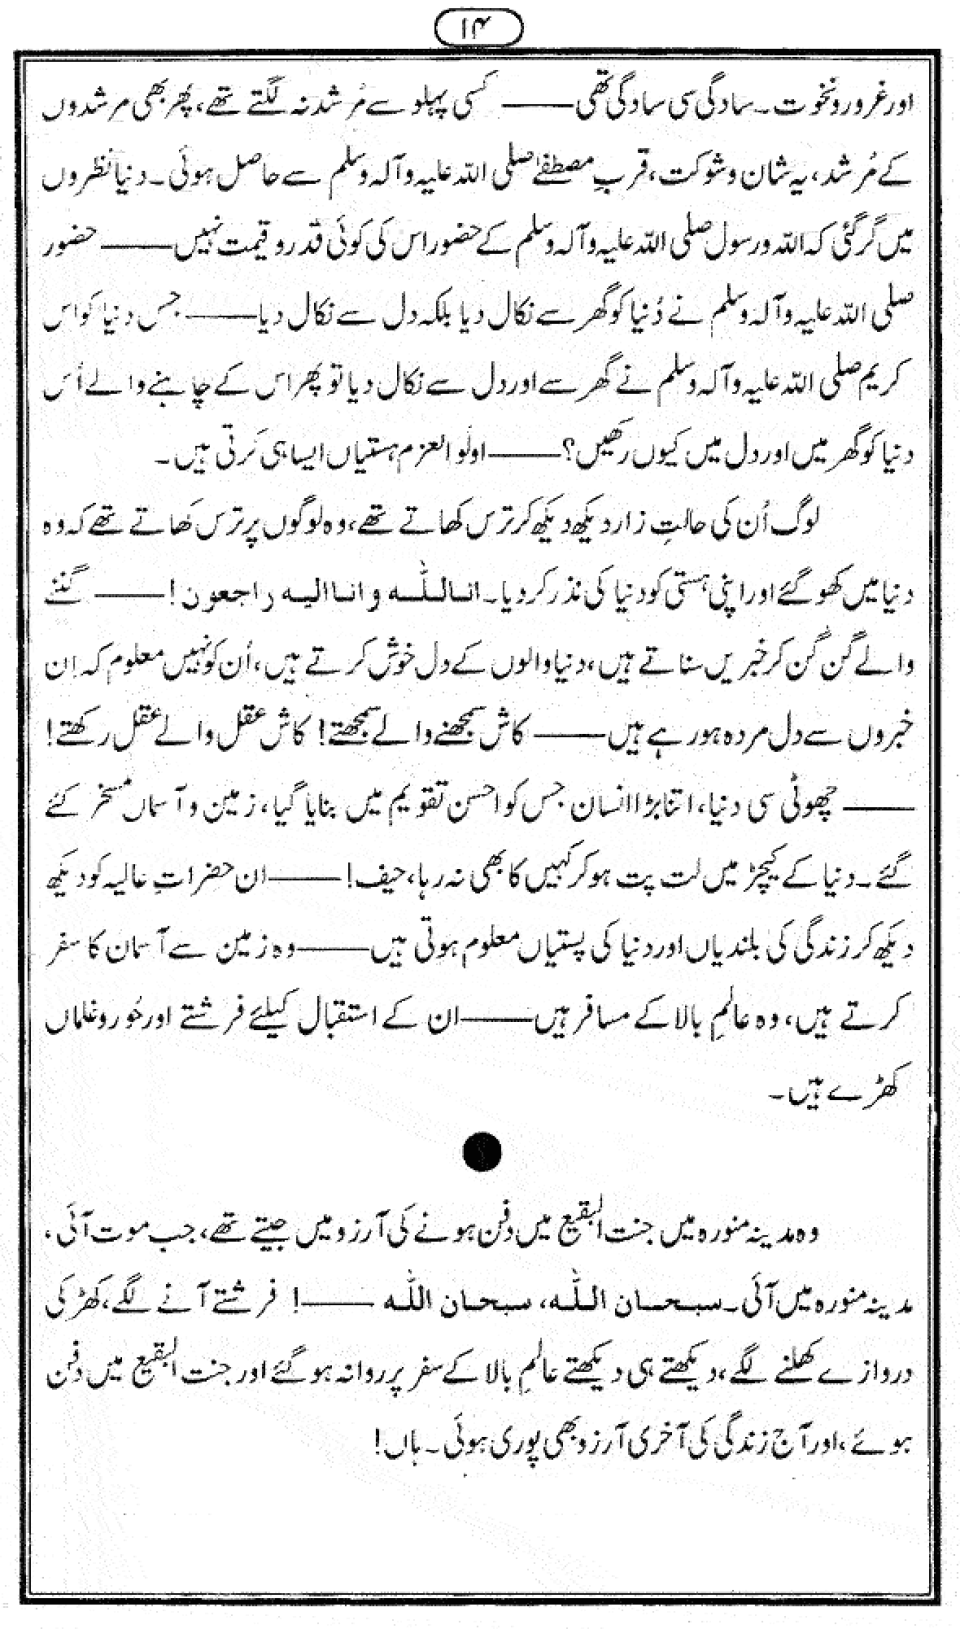 ۱۴
اور غرور ونخوت۔ سادگی سی سادگی تھی——— کسی پہلو سے مُرشد نہ لگتے تھے، پھر بھی مرشدوں
کے مُرشد، یہ شان و شوکت، قربِ مصطفےٰ صلی اللہ علیہ وآلہ وسلم سے حاصل ہوئی۔ دنیا نظروں
میں گر گئی کہ اللہ و رسول صلی اللہ علیہ وآلہ وسلم کے حضور اس کی کوئی قدر و قیمت نہیں——— حضور
صلی اللہ علیہ وآلہ وسلم نے دُنیا کو گھر سے نکال دیا بلکہ دل سے نکال دیا——— جس دنیا کو اس
کریم صلی اللہ علیہ وآلہ وسلم نے گھر سے اور دل سے نکال دیا تو پھر اس کے چاہنے والے اُس
دنیا کو گھر میں اور دل میں کیوں رکھیں؟——— اولُو العزم ہستیاں ایسا ہی کرتی ہیں۔
لوگ اُن کی حالتِ زار دیکھ دیکھ کر ترس کھاتے تھے، وہ لوگوں پر ترس کھاتے تھے کہ وہ
دنیا میں کھو گئے اور اپنی ہستی کو دنیا کی نذر کر دیا۔ انا للّٰہ و انا الیہ راجعون!——— گننے
والے گن گن کر خبریں سناتے ہیں، دنیا والوں کے دل خوش کرتے ہیں، اُن کو نہیں معلوم کہ اِن
خبروں سے دل مردہ ہو رہے ہیں——— کاش سمجھنے والے سمجھتے! کاش عقل والے عقل رکھتے!
——— چھوٹی سی دنیا، اتنا بڑا انسان جس کو احسن تقویم میں بنایا گیا، زمین و آسماں مسخر کئے
گئے۔ دنیا کے کیچڑ میں لت پت ہو کر کہیں کا بھی نہ رہا، حیف!——— ان حضراتِ عالیہ کو دیکھ
دیکھ کر زندگی کی بلندیاں اور دنیا کی پستیاں معلوم ہوتی ہیں——— وہ زمین سے آسمان کا سفر
کرتے ہیں، وہ عالمِ بالا کے مسافر ہیں——— ان کے استقبال کیلئے فرشتے اور حُور و غلماں
کھڑے ہیں۔
وہ مدینہ منورہ میں جنت البقیع میں دفن ہونے کی آرزو میں جیتے تھے، جب موت آئی،
مدینہ منورہ میں آئی۔ سبحان اللّٰہ، سبحان اللّٰہ ———! فرشتے آنے لگے، کھڑکی
دروازے کھلنے لگے، دیکھتے ہی دیکھتے عالمِ بالا کے سفر پر روانہ ہو گئے اور جنت البقیع میں دفن
ہوئے، اور آج زندگی کی آخری آرزو بھی پوری ہوئی۔ ہاں!